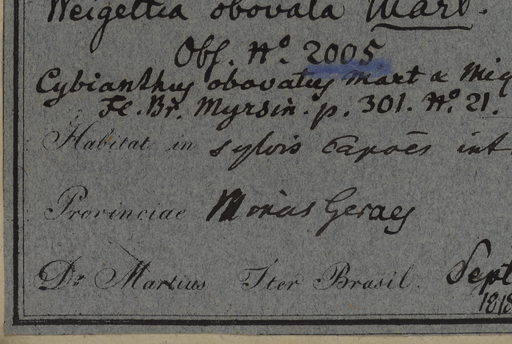 Weigeltia obovata Mart.
Obs. Nº. 2005
Cybianthus obovatus Mart & Miq
Fl. Br. Myrsin. p. 301. Nº 21.
Habitat in sylvis Capoēs int
Provinciae Minas Geraes
Dr Martius Iter Brasil. Sept
1818